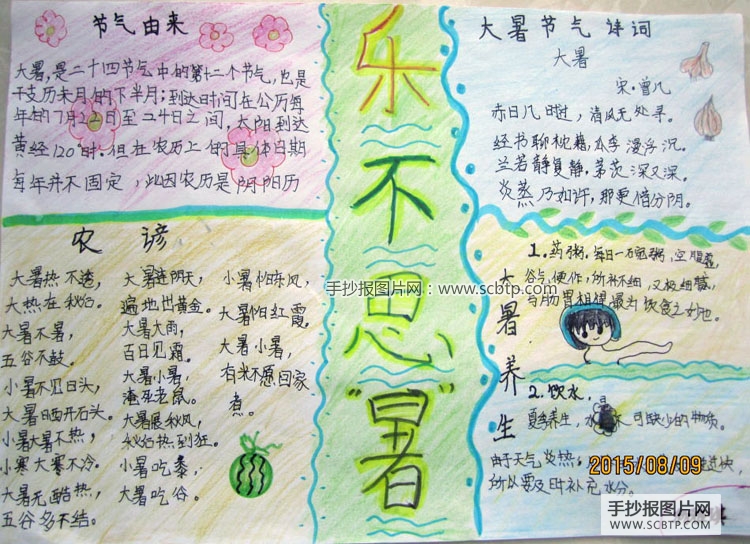 节气由来
大暑,是二十四节气中的第十二个节气,也是
干支历未月的下半月;到达时间在公历每
年的7月22日至24日之间,太阳到达
黄经120°时.但在农历上的具体日期
每年并不固定,此因农历是阴阳历
农谚
大暑热不透,
大热在秋后.
大暑不暑,
五谷不鼓。
小暑不见日头,
大暑晒开石头。
小暑大暑不热,
小寒大寒不冷。
大暑无酷热,
五谷多不结。
大暑连阴天,
遍地出黄金。
大暑大雨,
百日见霜。
大暑小暑,
淹死老鼠。
大暑展秋风,
秋后热到狂。
小暑吃黍,
大暑吃谷。
小暑怕东风,
大暑怕红霞。
大暑小暑,
有米不愿回家
煮。
乐不思"暑"
大暑节气诗词
大暑
宋·曾几
赤日几时过,清风无处寻。
经书聊枕藉,瓜李漫浮沉。
兰若静复静,茅茨深又深。
炎蒸乃如许,那更惜分阴。
大暑养生
1.药粥.每日一碗粥,空腹
谷气便作,所补不细,又极细腻,
与肠胃相得,最为饮食之妙也。
2.饮水.
夏季养生,水 可缺少的物质。
由于天气炎热,
所以要及时补充水分。
手抄报图片网:www.scbtp.com
2015/08/09
手抄报图片网
WWW.SCBTP.COM